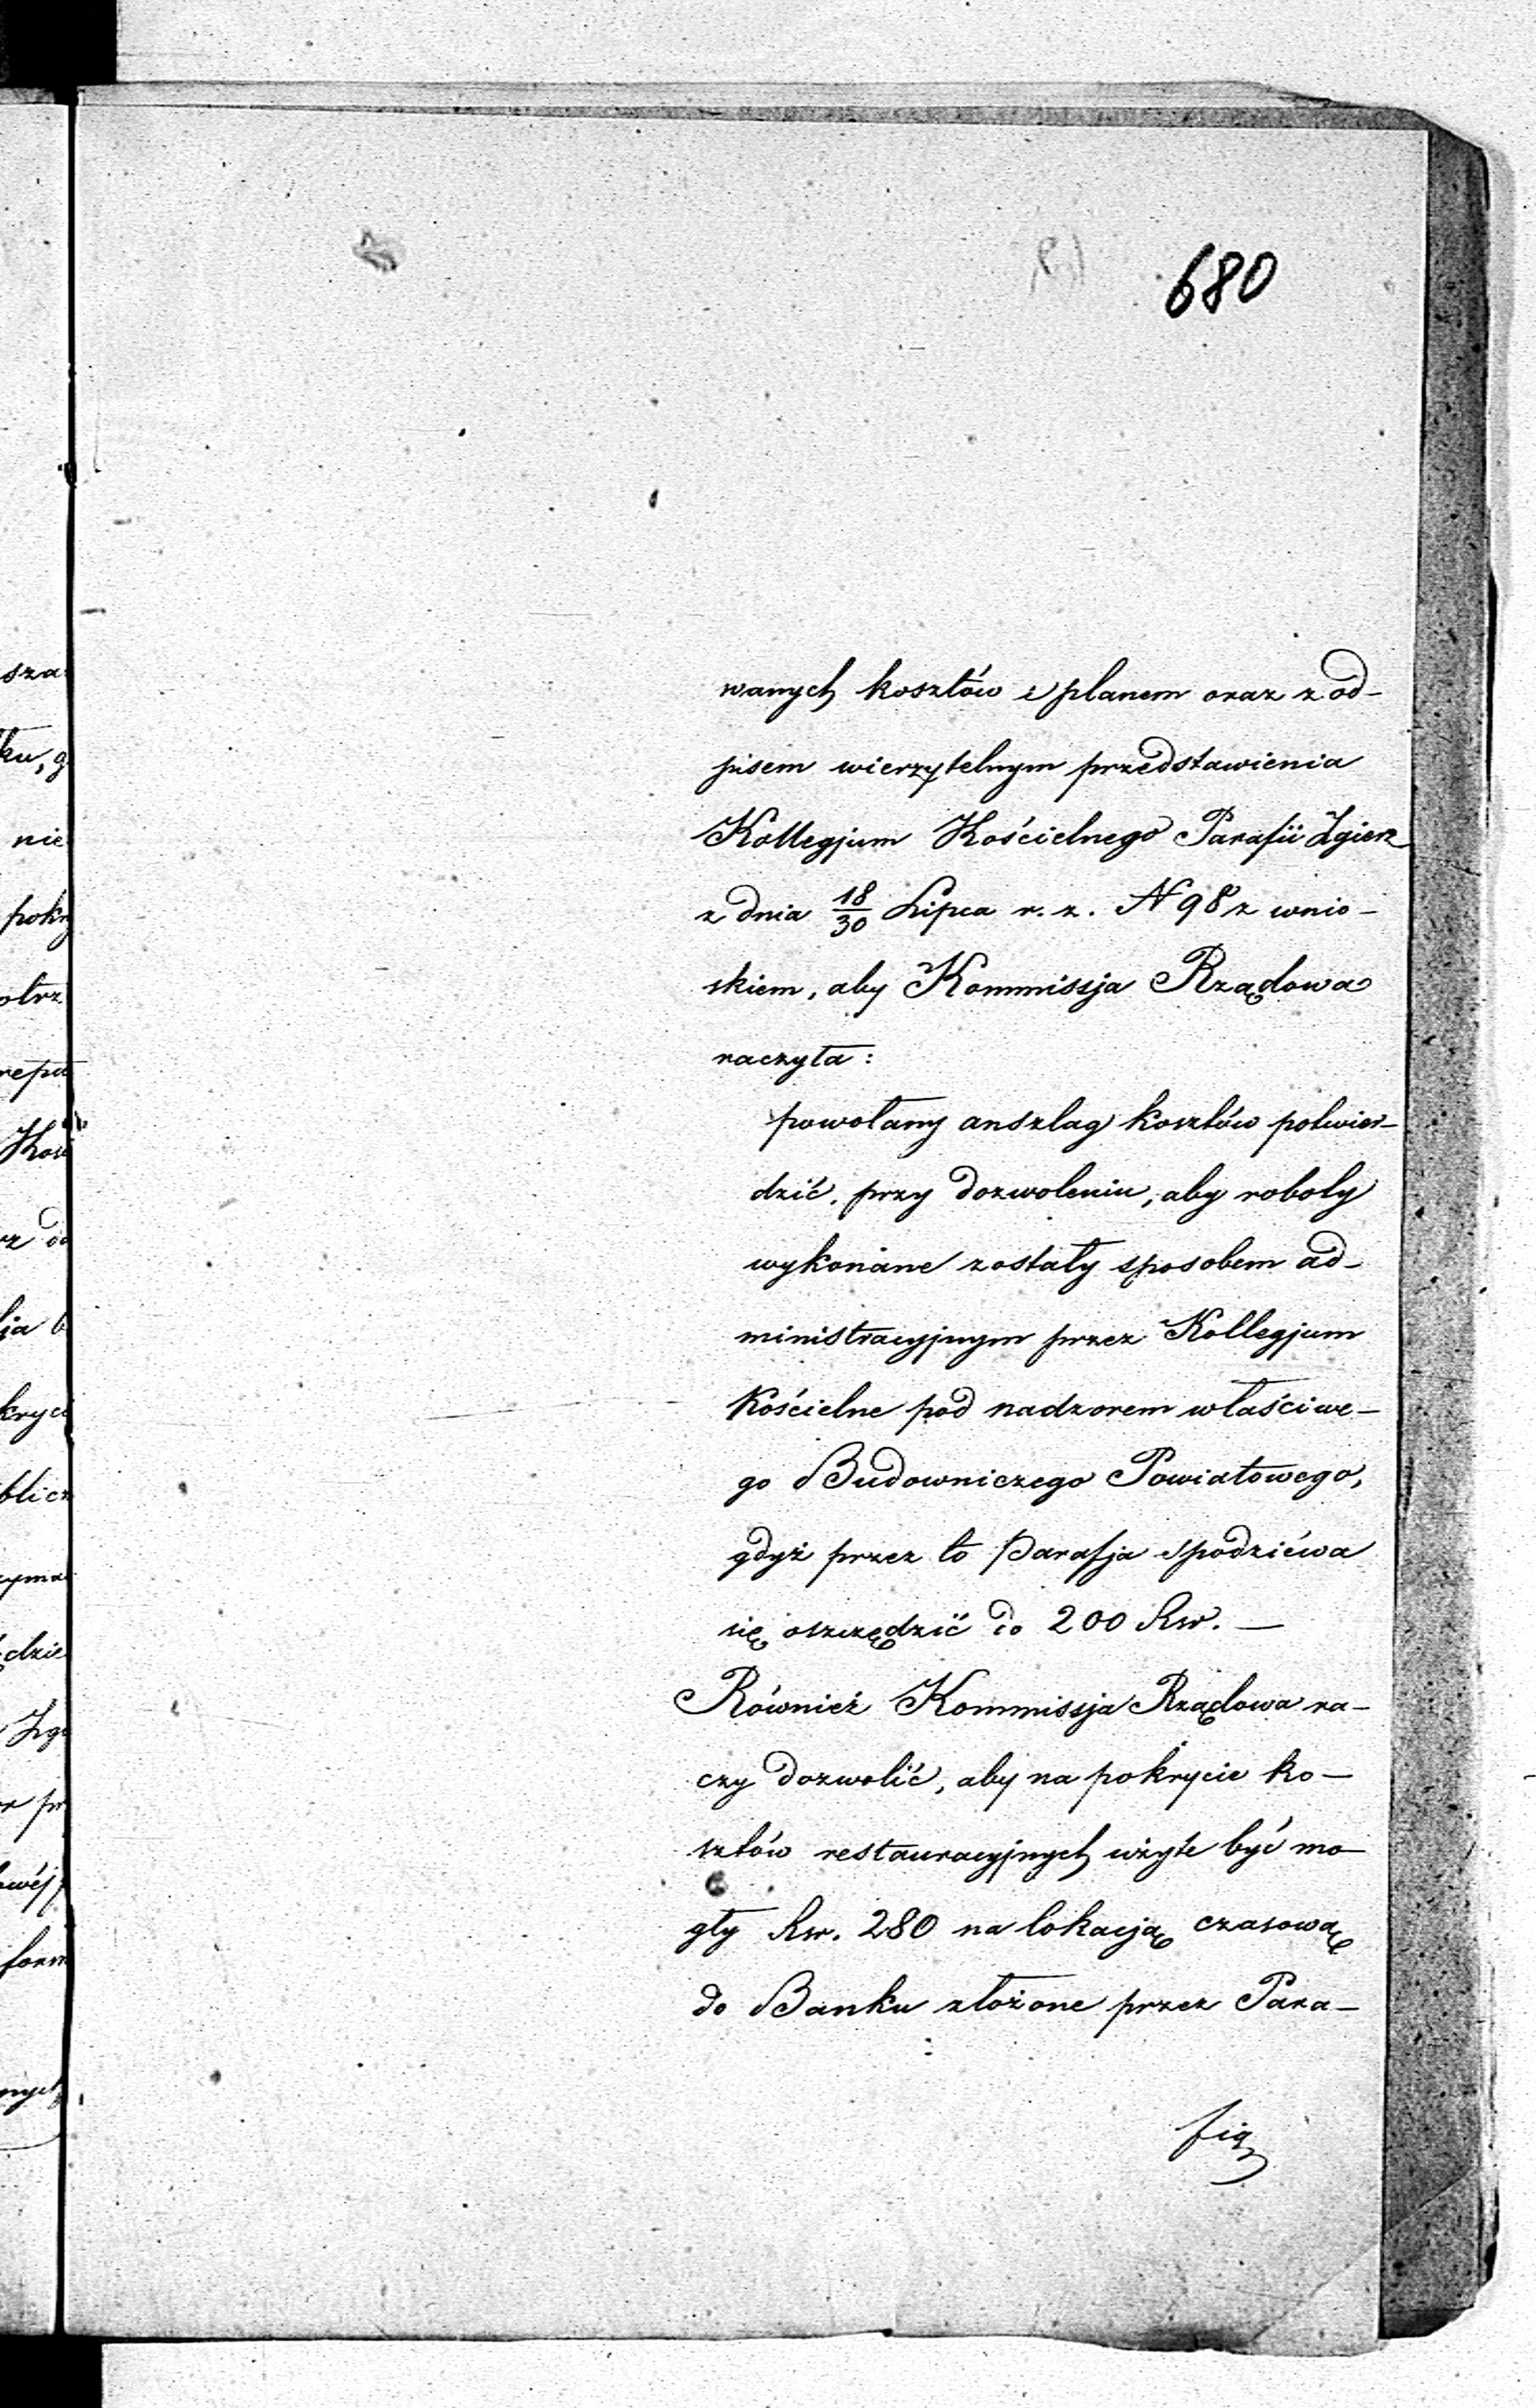 680
wanych kosztów i planem oraz z od-
pisem wierzytelnym przedstawienia
Kollegjum Kościelnego Parafii Zgierz
z dnia 18/30 Lipca r. z. N 98 z wnio-
skiem, aby Kommissja Rządowa
raczyła:
powołany anszlag kosztów potwier-
dzić, przy dozwoleniu, aby roboty
wykonane zostały sposobem ad-
ministracyjnym przez Kollegjum
Kościelne pod nadzorem właściwe-
go Budowniczego Powiatowego,
gdyż przez to Parafja spodziéwa
się oszczędzić do 200 Rsr. —
Również Kommissja Rządowa ra-
czy dozwolić, aby na pokrycie ko-
sztów restauracyjnych użyte być mo
gły Rsr. 280 na lokację czasową
do Banku złożone przez Para-
fią